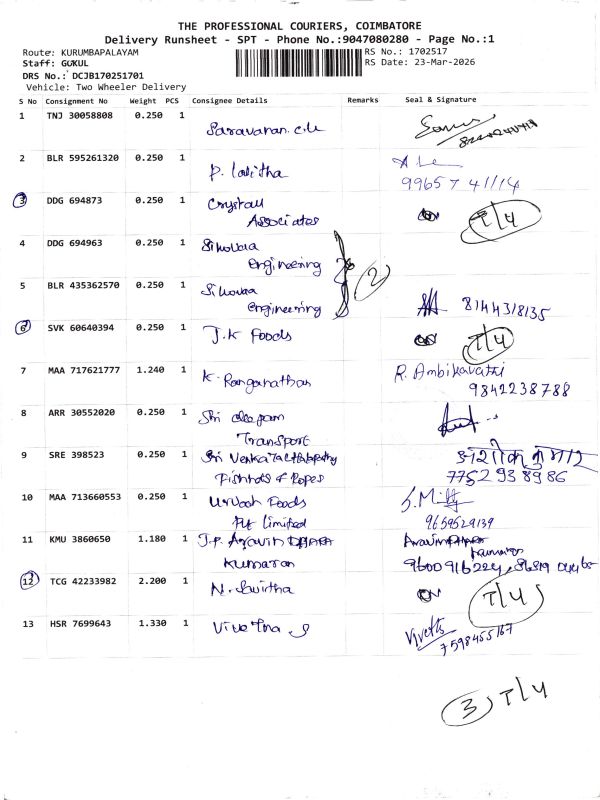 THE PROFESSIONAL COURIERS, COIMBATORE
Delivery Runsheet - SPT - Phone No.:9047080280 - Page No.:1
Route: KURUMBAPALAYAM
RS No.: 1702517
Staff: GOKUL
RS Date: 23-Mar-2026
DRS No.: DCJB170251701
Vehicle: Two Wheeler Delivery
S No Consignment No Weight PCS Consignee Details Remarks Seal & Signature
1 TNJ 30058808 0.250 1 Saravanan.
2 BLR 595261320 0.250 1 P. Lalitha
99657 41114
3 DDG 694873 0.250 1 Crystall
Associates T/4
4 DDG 694963 0.250 1
Engineering
2
5 BLR 435362570 0.250 1
Engineering 8144318135
6 SVK 60640394 0.250 1 J.K Foods T/4
7 MAA 717621777 1.240 1 K. Ranganathan R. Ambikavathi
9842238788
8 ARR 30552020 0.250 1 Sri
Transport
9 SRE 398523 0.250 1 Sri
Fishnets & Ropes 7752938986
10 MAA 713660553 0.250 1 Foods
Pvt Limited 9659529139
11 KMU 3860650 1.180 1 J.P. Aravin
Kumaran kumaran
9600916224,
12 TCG 42233982 2.200 1 N. Savitha T/4
13 HSR 7699643 1.330 1
7598455167
3 T/4